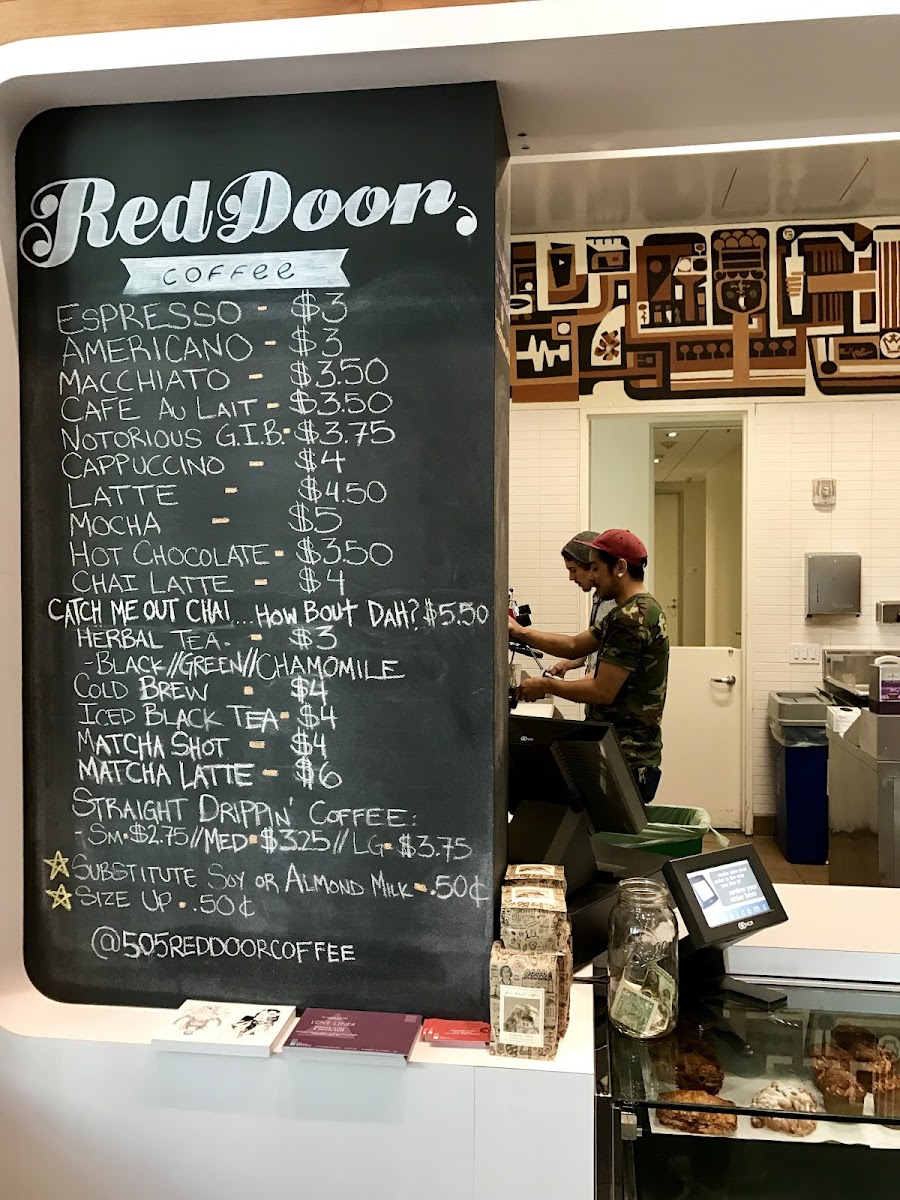 Red Door
COFFEE
ESPRESSO - $3
AMERICANO - $3
MACCHIATO - $3.50
CAFE AU LAIT - $3.50
NOTORIOUS G.I.B. - $3.75
CAPPUCCINO - $4
LATTE - $4.50
MOCHA - $5
HOT CHOCOLATE - $3.50
CHAI LATTE - $4
CATCH ME OUT CHAI... HOW BOUT DAH? $5.50
HERBAL TEA - $3
-BLACK//GREEN//CHAMOMILE
COLD BREW - $4
ICED BLACK TEA - $4
MATCHA SHOT - $4
MATCHA LATTE - $6
STRAIGHT DRIPPIN' COFFEE:
- SM - $2.75 // MED - $3.25 // LG - $3.75
SUBSTITUTE SOY OR ALMOND MILK - .50¢
SIZE UP - .50¢
@505REDDOORCOFFEE